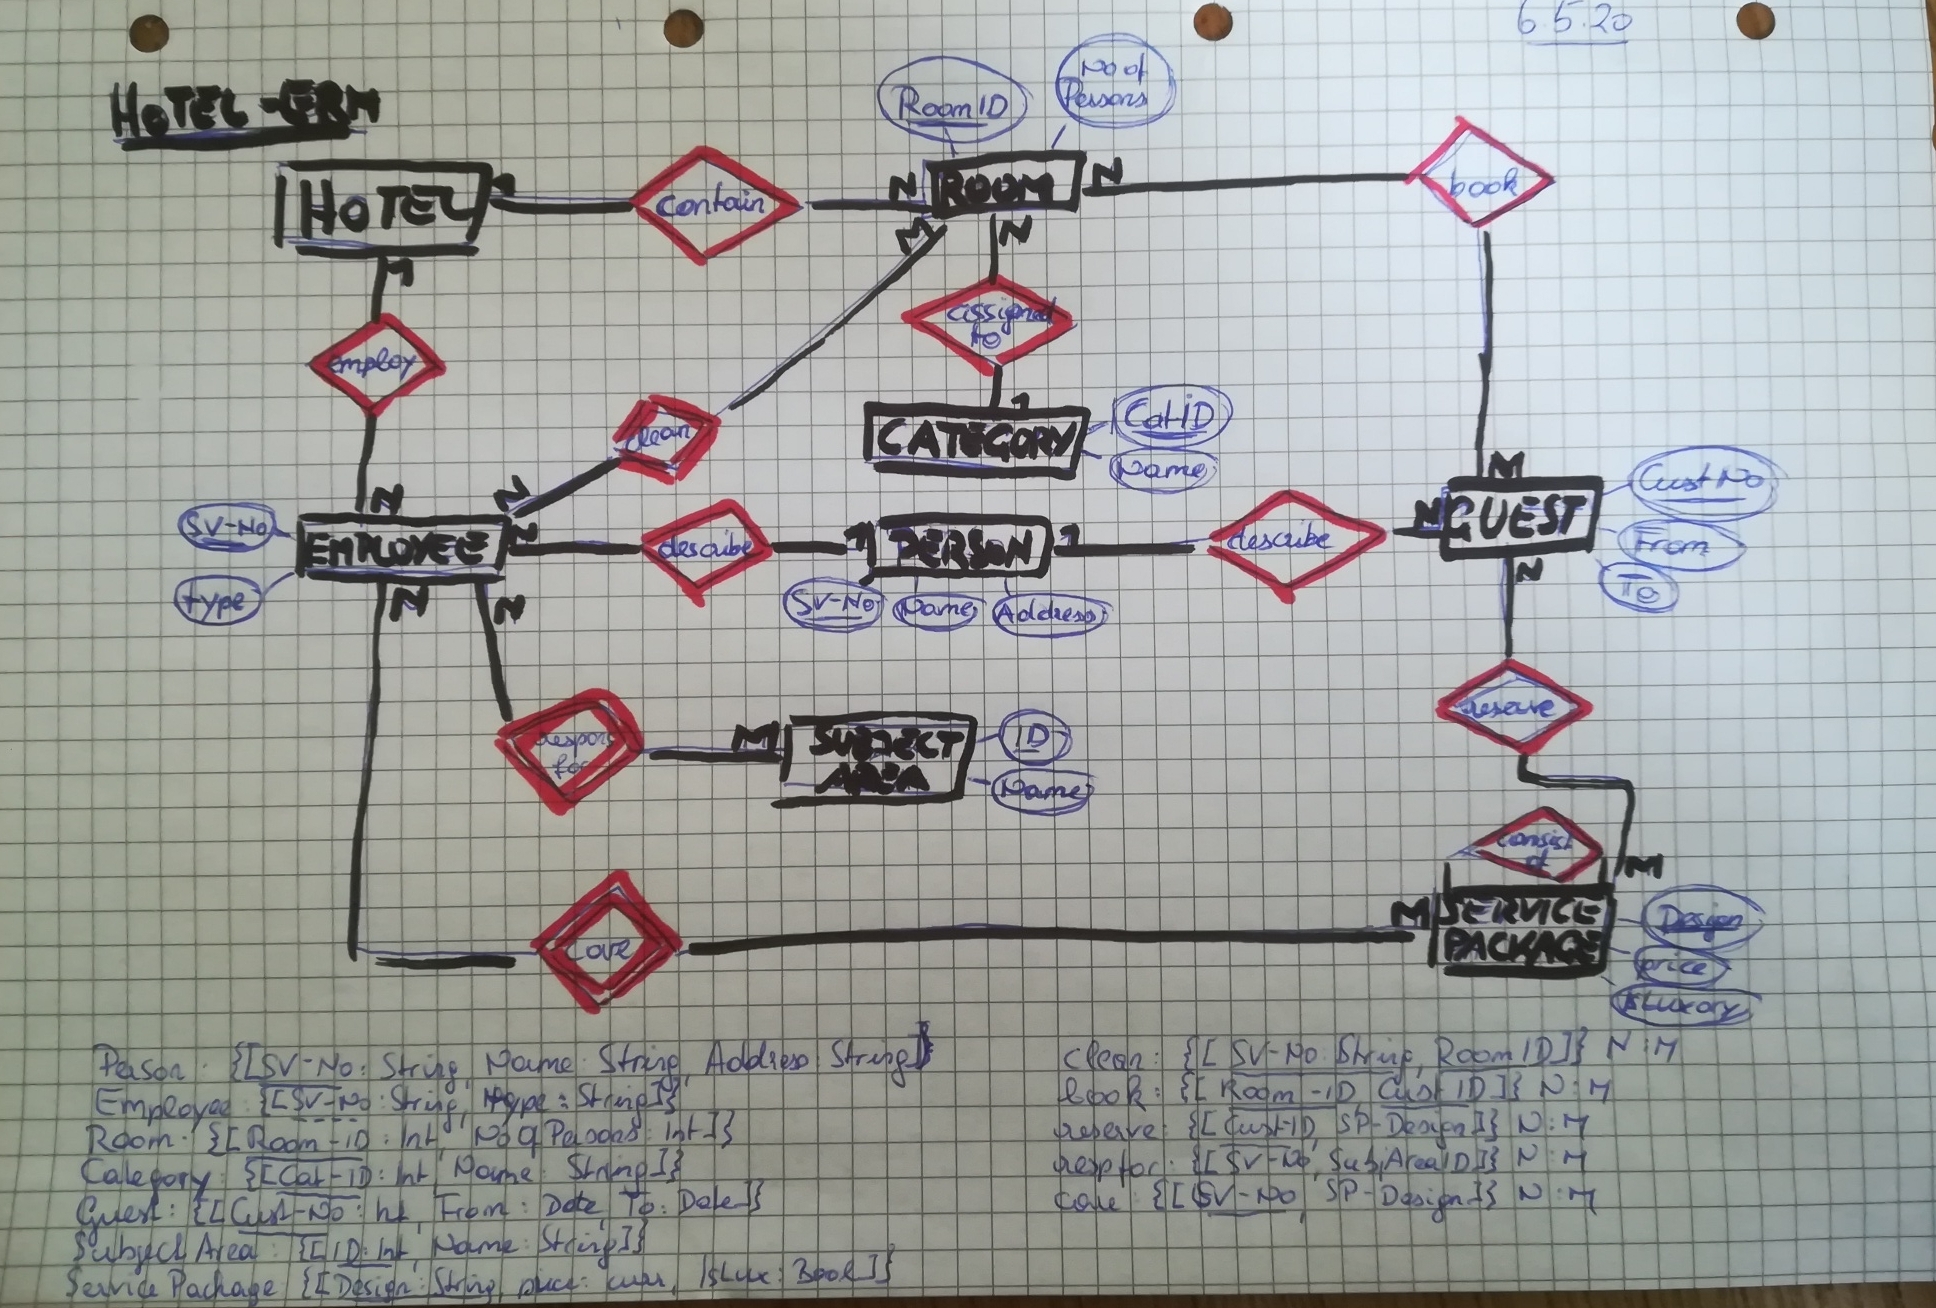 6.5.20
HOTEL-ERM
RoomID
No of
Persons
HOTEL
1
contain
N
ROOM
N
book
M
M
N
employ
assigned
to
clean
1
CATEGORY
Cat-ID
Name
N
N
M
SV-No
type
EMPLOYEE
N
describe
1
PERSON
1
describe
N
GUEST
Cust No
From
To
SV-No
Name
Address
N
N
N
reserve
respons
for
M
SUBJECT
AREA
ID
Name
consist
of
M
care
M
SERVICE
PACKAGE
Design
price
isLuxory
Person: {[SV-No: String, Name: String, Address: String]}
Employee: {[SV-No: String, type: String]}
Room: {[Room-ID: Int, No of Persons: Int]}
Category: {[Cat-ID: Int, Name: String]}
Guest: {[Cust-No: Int, From: Date, To: Date]}
Subject Area: {[ID: Int, Name: String]}
Service Package {[Design: String, price: curr, IsLux: Bool]}
clean: {[SV-No: String, RoomID]} N:M
book: {[Room-ID, Cust ID]} N:M
reserve: {[Cust-ID, SP-Design]} N:M
resp for: {[SV-No, SubAreaID]} N:M
care {[SV-No, SP-Design]} N:M